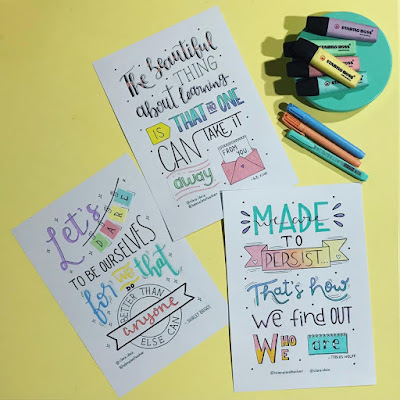 The beautiful
THING
about learning
IS THAT NO ONE
CAN TAKE IT
away FROM YOU
B.B. KING
Let's
DARE
TO BE OURSELVES
for we do that
BETTER THAN
anyone
ELSE CAN
- SHIRLEY BRIGGS
we are
MADE
TO
PERSIST...
That's how
We FIND OUT
WHO
WE are
- TOBIAS WOLFF
STABILO BOSS
STABILO BOSS
STABILO BOSS